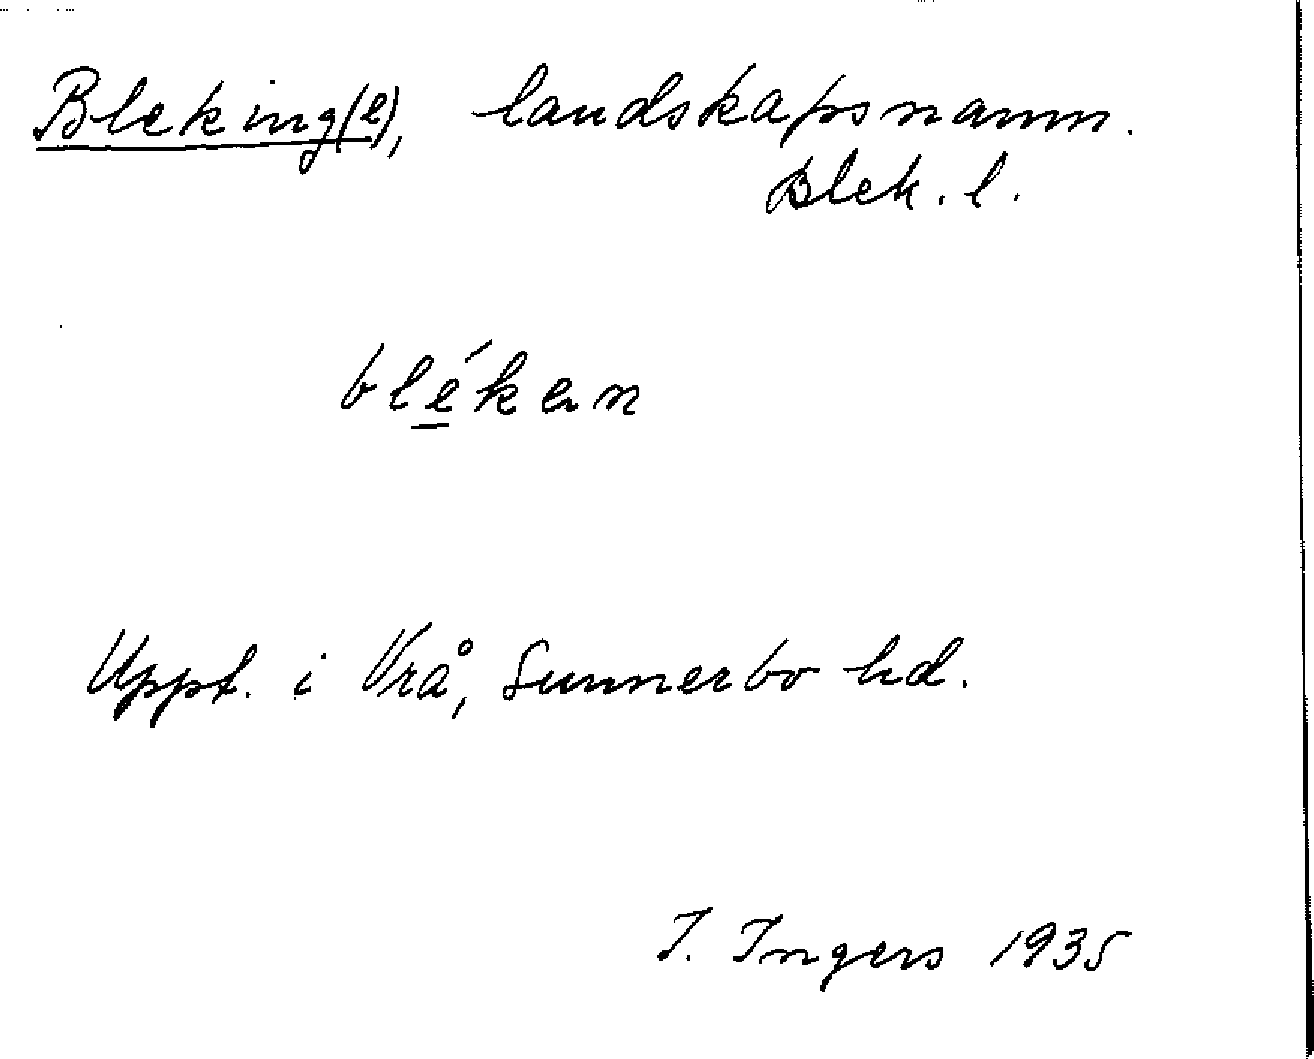 Bleking(e), landskapsnamn.
Blek. l.
blékən
Uppt. i Vrå, Sunnerbo hd.
I. Ingers 1935